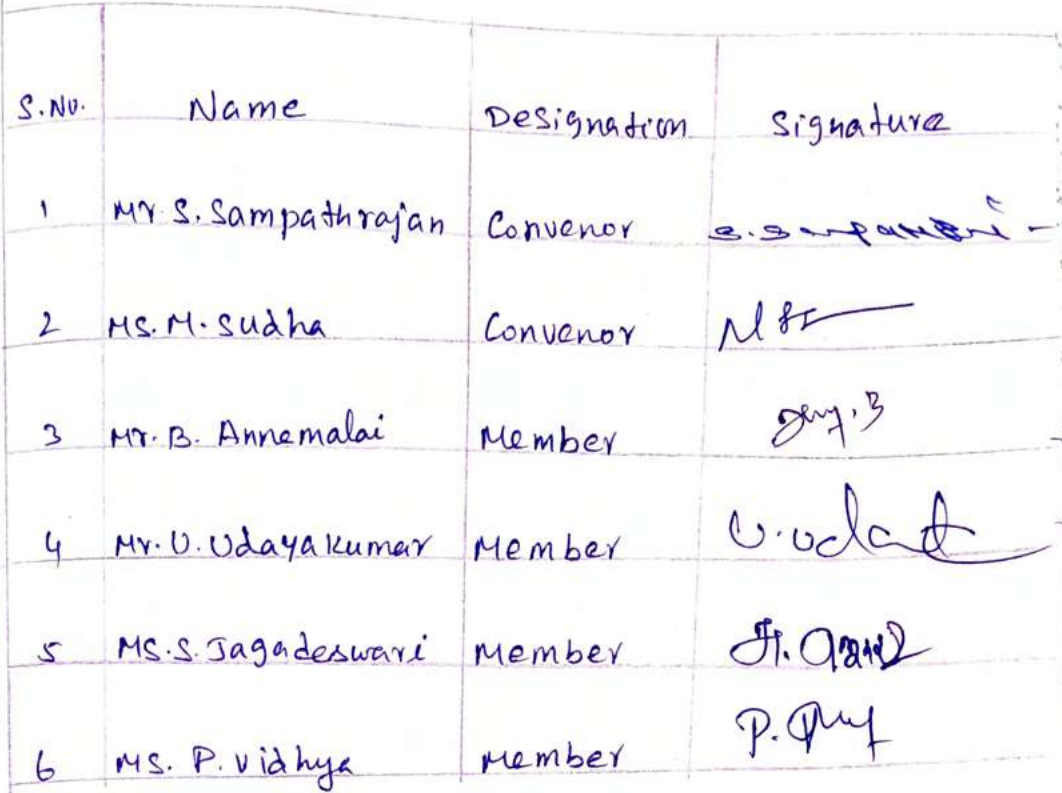 S.No. Name Designation Signature
1 Mr. S. Sampathrajan Convenor
2 Ms. M. Sudha Convenor
3 Mr. B. Annemalai Member
4 Mr. U. Udayakumar Member
5 Ms. S. Jagadeswari Member
6 Ms. P. Vidhya Member